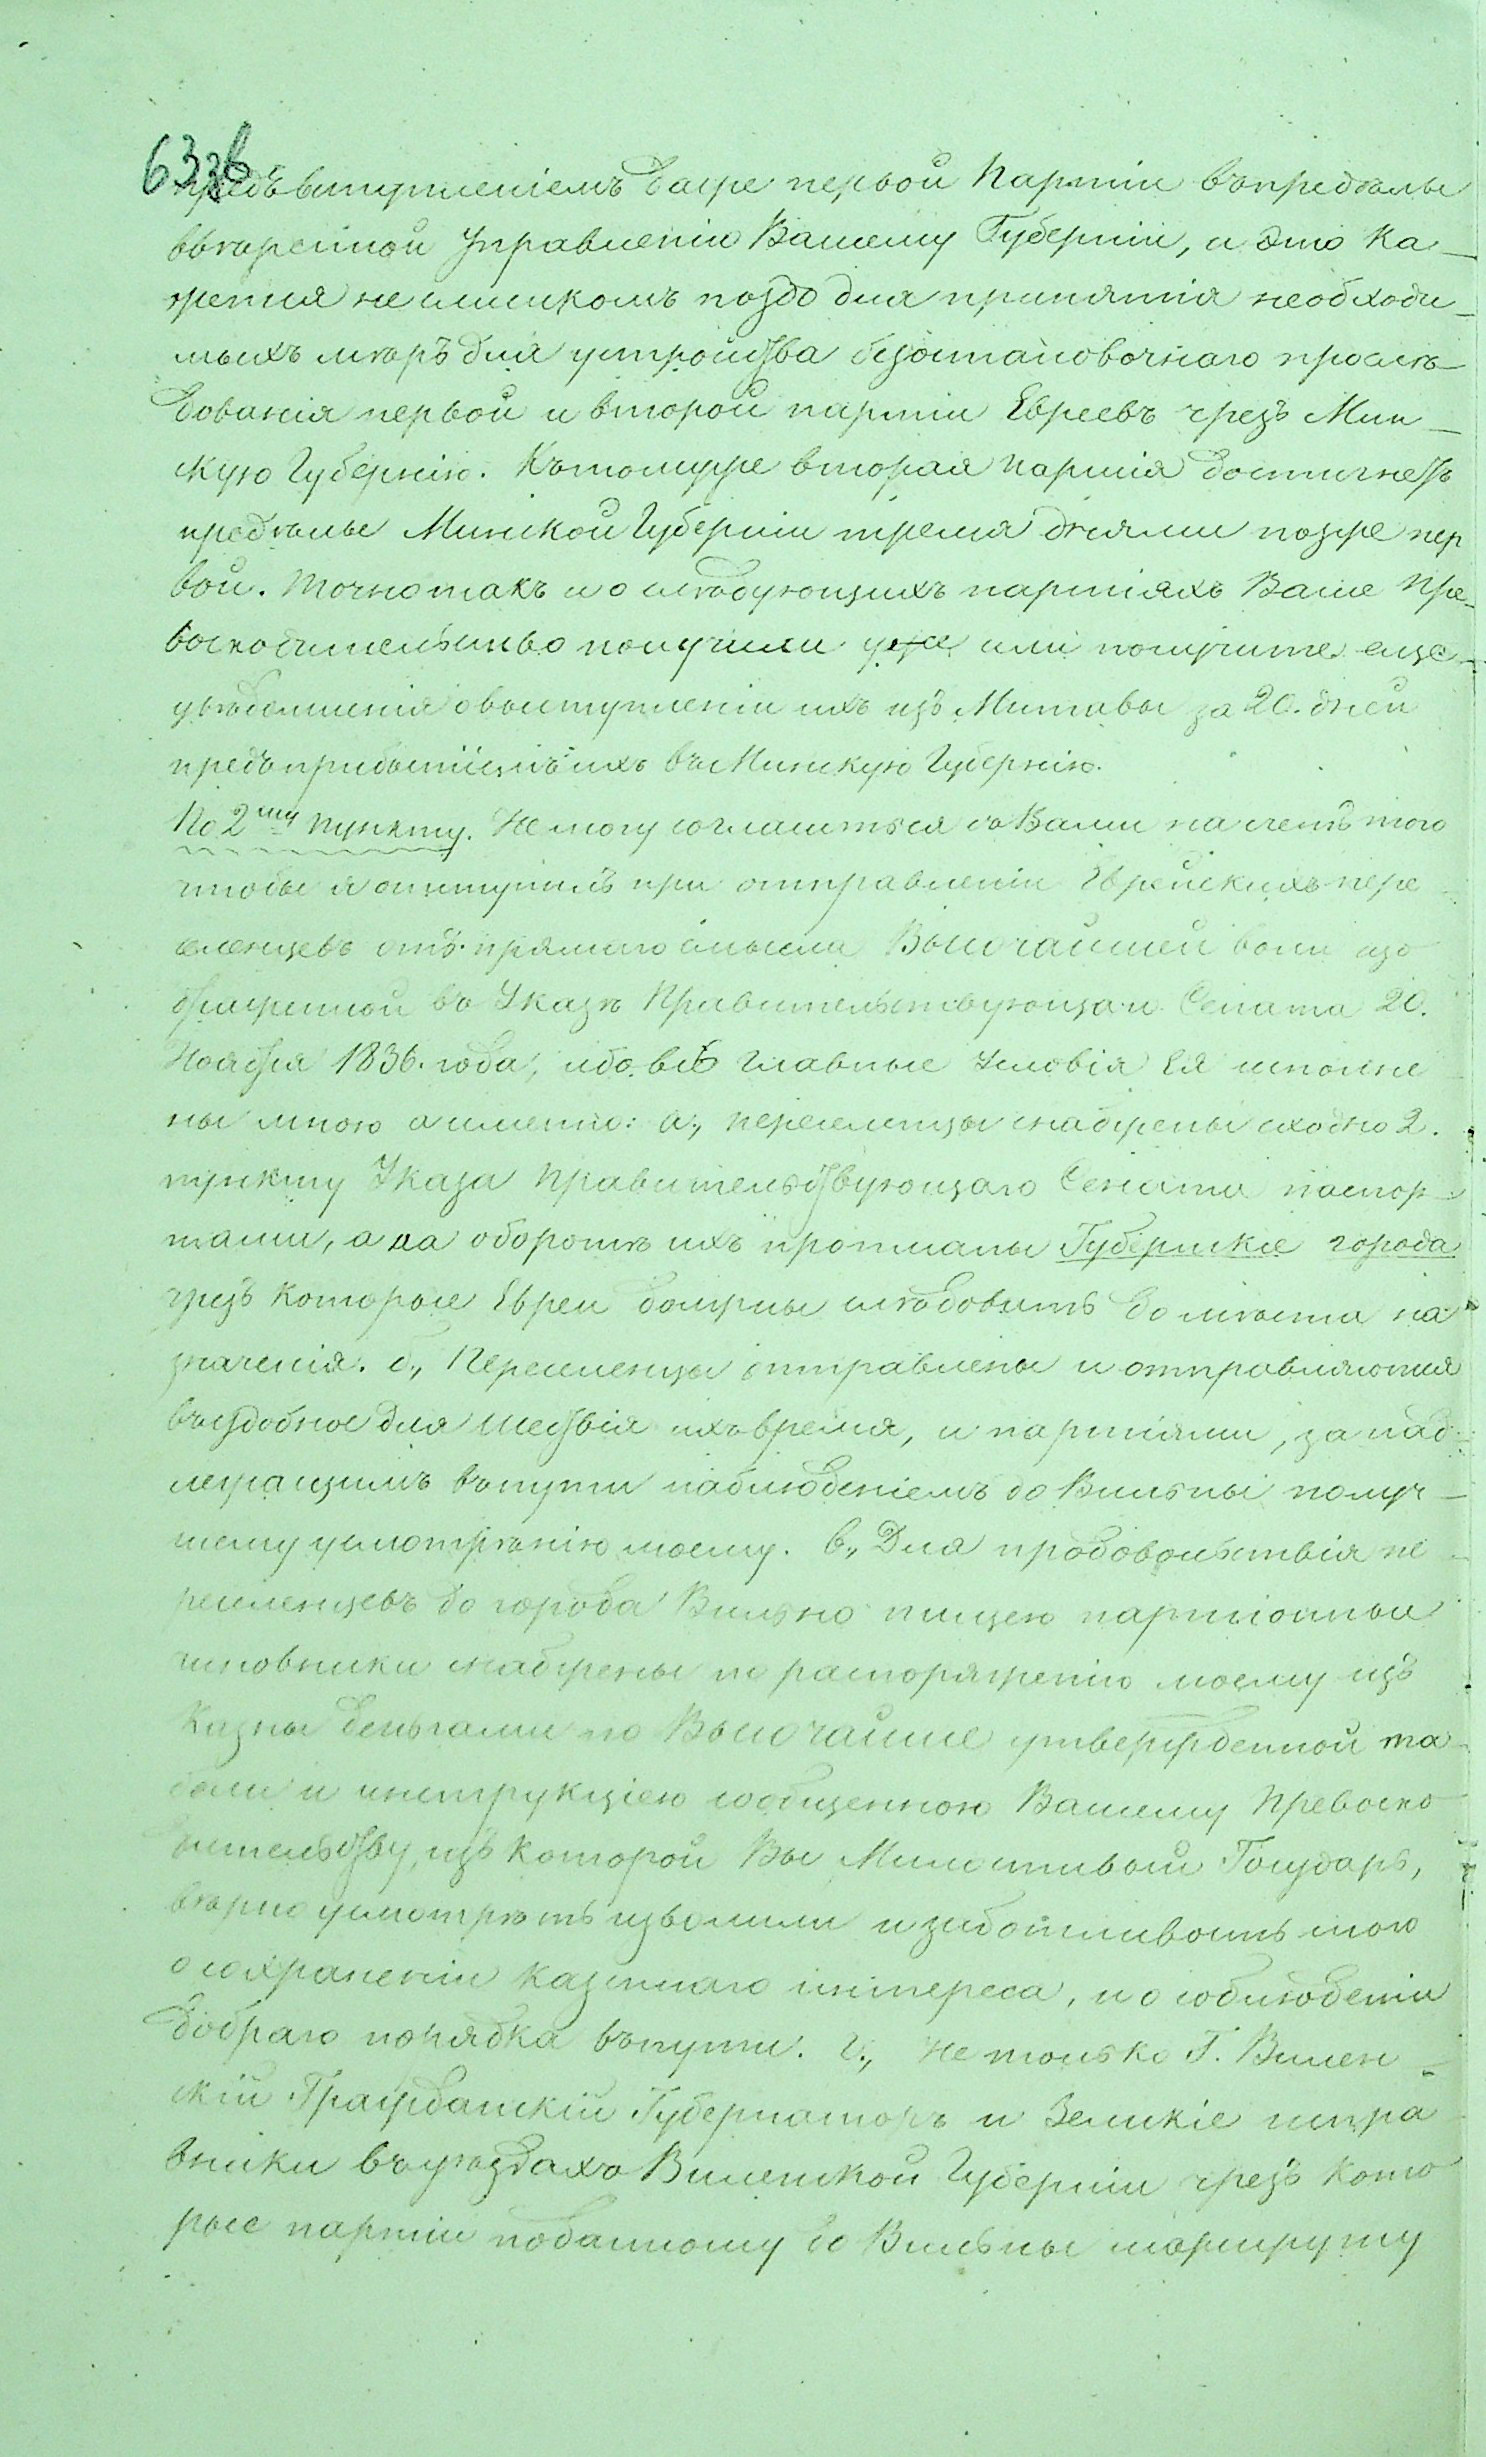 633б
предъ вступленіемъ даже первой Партіи въ предѣлы
ввѣренной Управленію Вашему Губерніи, и это ка-
жется не слишкомъ поздо для принятія необходи-
мыхъ мѣръ для устройства безостановочнаго прослѣ-
дованія первой и второй партіи Евреевъ чрезъ Мин-
скую Губернію. Къ тому же вторая партія достигнетъ
предѣлы Минской Губерніи тремя днями позже пер
вой. Точно такъ и о слѣдующихъ партіяхъ Ваше Пре-
восходительство получили уже или получите еще
увѣдомленія о выступленіи ихъ изъ Митавы за 20. дней
предъ прибытіемъ ихъ въ Минскую Губернію.
По 2му пункту. Не могу согласиться съ Вами на счетъ того
чтобы я отступилъ при отправленіи Еврейскихъ пере
селенцевъ отъ прямаго смысла Высочайшей воли изо
браженной въ Указѣ Правительствующаго Сената 20.
Ноября 1836. года, ибо всѣ главные условія Ея исполне
ны мною а именно: а., переселенцы снабжены сходно 2.
пункту Указа Правительствующаго Сената паспор-
тами, а на оборотѣ ихъ прописаны Губернскіе города
чрезъ которые Евреи должны слѣдовать до мѣста на
значенія. б., Переселенцы отправлены и отправляются
въ удобное для шествія ихъ время, и партіями, за над-
лежащимъ въ пути наблюденіемъ до Вильны по луч-
шему усмотрѣнію моему. в., Для продовольствія пе
реселенцевъ до города Вильно пищею партіонные
чиновники снабжены по распоряженію моему изъ
Казны деньгами по Высочайше утвержденной та-
бели и инструкціею сообщенною Вашему Превосхо
дительству, изъ которой Вы Милостивый Государь,
вѣрно усмотрѣть изволили и заботливость мою
о сохраненіи казеннаго интереса, и о соблюденіи
добраго порядка въ пути. г., Не только Г. Вилен-
скій Гражданскій Губернаторъ и Земскіе испра
вники въ уѣздахъ Виленской Губерніи чрезъ кото
рые партіи по данному до Вильны маршруту